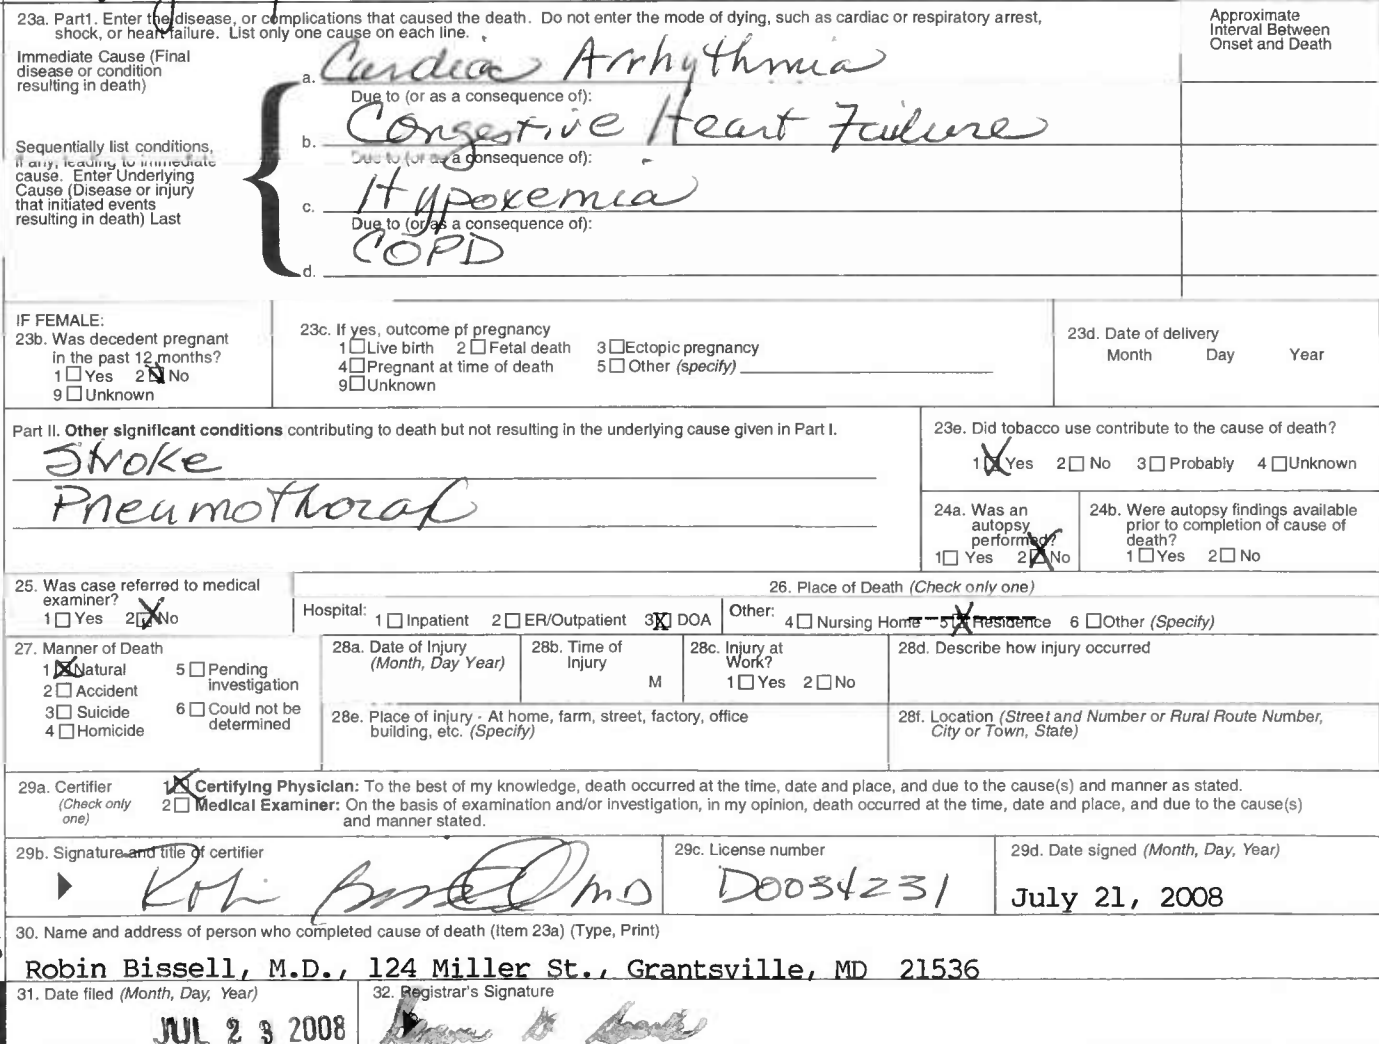 23a. Part1. Enter the disease, or complications that caused the death. Do not enter the mode of dying, such as cardiac or respiratory arrest,
shock, or heart failure. List only one cause on each line.
Approximate
Interval Between
Onset and Death
Immediate Cause (Final
disease or condition
resulting in death)
a. Cardiac Arrhythmia
Due to (or as a consequence of):
b. Congestive Heart Failure
Sequentially list conditions,
if any, leading to immediate
cause. Enter Underlying
Cause (Disease or injury
that initiated events
resulting in death) Last
Due to (or as a consequence of):
c. Hypoxemia
Due to (or as a consequence of):
d. COPD
IF FEMALE:
23b. Was decedent pregnant
in the past 12 months?
1 Yes 2 No
9 Unknown
23c. If yes, outcome pf pregnancy
1 Live birth 2 Fetal death 3 Ectopic pregnancy
4 Pregnant at time of death 5 Other (specify)
9 Unknown
23d. Date of delivery
Month Day Year
Part II. Other significant conditions contributing to death but not resulting in the underlying cause given in Part I.
Stroke
Pneumothorax
23e. Did tobacco use contribute to the cause of death?
1 Yes 2 No 3 Probably 4 Unknown
24a. Was an
autopsy
performed?
1 Yes 2 No
24b. Were autopsy findings available
prior to completion of cause of
death?
1 Yes 2 No
25. Was case referred to medical
examiner?
1 Yes 2 No
26. Place of Death (Check only one)
Hospital: 1 Inpatient 2 ER/Outpatient 3 DOA Other: 4 Nursing Home 5 Residence 6 Other (Specify)
27. Manner of Death
1 Natural 5 Pending
investigation
2 Accident
3 Suicide 6 Could not be
determined
4 Homicide
28a. Date of Injury
(Month, Day Year)
28b. Time of
Injury
M
28c. Injury at
Work?
1 Yes 2 No
28d. Describe how injury occurred
28e. Place of injury - At home, farm, street, factory, office
building, etc. (Specify)
28f. Location (Street and Number or Rural Route Number,
City or Town, State)
29a. Certifier
(Check only
one)
1 Certifying Physician: To the best of my knowledge, death occurred at the time, date and place, and due to the cause(s) and manner as stated.
2 Medical Examiner: On the basis of examination and/or investigation, in my opinion, death occurred at the time, date and place, and due to the cause(s)
and manner stated.
29b. Signature and title of certifier
Robin Bissell MD
29c. License number
D0034231
29d. Date signed (Month, Day, Year)
July 21, 2008
30. Name and address of person who completed cause of death (Item 23a) (Type, Print)
Robin Bissell, M.D., 124 Miller St., Grantsville, MD 21536
31. Date filed (Month, Day, Year)
JUL 23 2008
32. Registrar's Signature